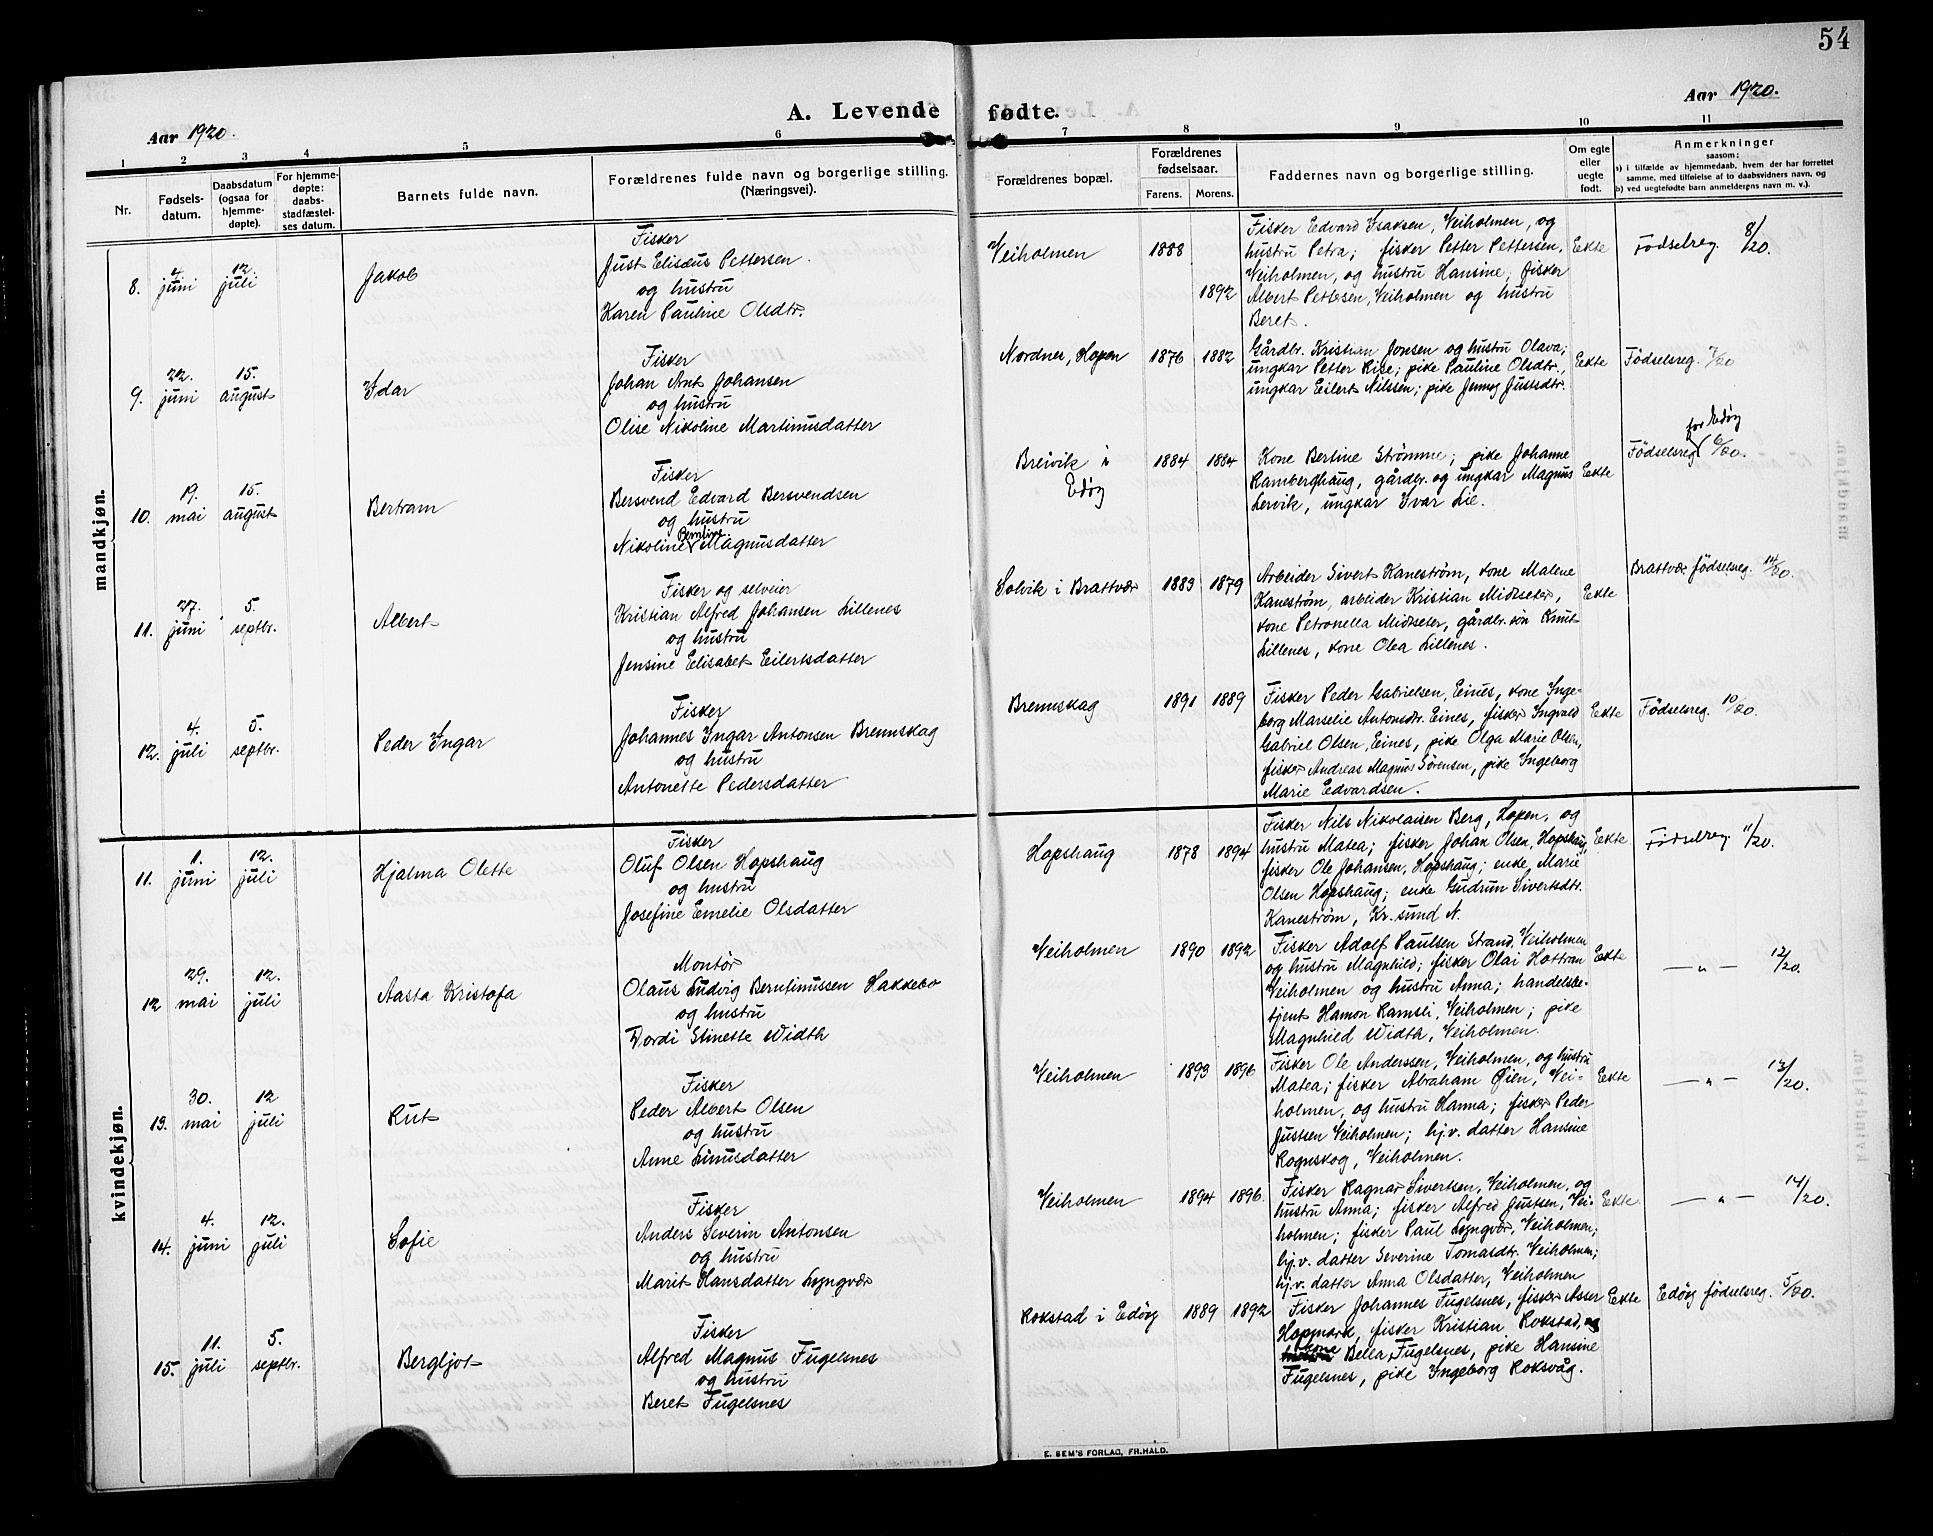 54
Aar 1920.
A. Levende fødte.
Aar 1920.
1 2 3 4 5 6 7 8 9 10 11
Nr.
Fødsels-
datum.
Daabsdatum
(ogsaa for
hjemme-
døpte).
For hjemme-
døpte:
daabs-
stadfæstel-
ses datum.
Barnets fulde navn.
Forældrenes fulde navn og borgerlige stilling.
(Næringsvei).
Forældrenes bopæl.
Forældrenes
fødselsaar.
Farens. Morens.
Faddernes navn og borgerlige stilling.
Om egte
eller
uegte
født.
Anmerkninger
saasom:
a) i tilfælde av hjemmedaab, hvem der har forrettet
samme, med tilføielse af to daabsvidners navn, og
b) ved uegtefødte barn anmelderens navn m. v.).
mandkjøn.
8. 4. juni 12. juli
Jakob
Fisker
Just Elisæus Pettersen
og hustru
Karen Pauline Olsdtr.
Veiholmen 1888 1892
Fisker Edvard Isaksen, Veiholmen, og
hustru Petra; fisker Petter Pettersen,
Veiholmen, og hustru Hansine; fisker
Albert Pettesen, Veiholmen og hustru
Beret.
Ekte
Fødselreg. 8/20.
9. 22. juni 15. august
Idar
Fisker
Johan Arnt Johansen
og hustru
Olise Nikoline Martinusdatter
Nordnes, Hopen 1876 1882
Gårdbr. Kristian Jonsen og hustru Olava;
ungkar Petter Rise; pike Pauline Olsdtr.,
ungkar Eilert Nilssen; pike Jenny Justsdtr.
Ekte
Fødselsreg. 7/20
10. 19. mai 15. august
Bertram
Fisker
Bersvend Edvard Bersvendsen
og hustru
Nikoline Berntine Magnusdatter
Breivik i
Edøy
1884 1884
Kone Bertine Strømme; pike Johanne
Ramberghaug, gårdbr. og ungkar Magnus
Lervik, ungkar Ivar Lie.
Ekte
for Edøy
Fødselsreg. 6/20.
11. 27. juni 5. septbr.
Albert
Fisker og selveier
Kristian Alfred Johansen Lillenes
og hustru
Jensine Elisabet Eilertsdatter
Solvik i Brattvær 1883 1879
Arbeider Sivert Kanestrøm, kone Malene
Kanestrøm, arbeider Kristian Midtseter,
kone Petronella Midtseter, gårdbr. søn Knut
Lillenes, kone Olea Lillenes.
Ekte
Brattvær fødselsreg. 14/20.
12. 4. juli 5. septbr.
Peder Ingar
Fisker
Johannes Ingar Antonsen Bremskag
og hustru
Antonette Pedersdatter
Bremskag 1891 1889
Fisker Peder Gabrielsen, Eines, kone Inge-
borg Marselie Antonsdtr. Eines, fisker Ingvald
Gabriel Olsen, Eines, pike Olga Marie Olsen,
fisker Andreas Magnus Sørensen, pike Ingeborg
Marie Edvardsen.
Ekte
Fødselsreg. 10/20.
kvindekjøn.
11. 1. juni 12. juli
Hjalma Olette
Fisker
Oluf Olsen Hopshaug
og hustru
Josefine Emelie Olsdatter
Hopshaug 1878 1894
Fisker Nils Nikolaisen Berg, Hopen, og
hustru Matea; fisker Johan Olsen, Hopshaug,
fisker Ole Johansen, Hopshaug; enke Marie
Olsen Hopshaug; enke Gudrun Sivertsdtr.
Kanestrøm, Kr. sund N.
Ekte
Fødselreg 11/20.
12 29. mai 12. juli
Aasta Kristofa
Montør
Olaus Ludvig Berntinussen Hakkebo
og hustru
Dordi Stinette Width
Veiholmen 1890 1892
Fisker Adolf Paulsen Strand, Veiholmen
og hustru Magnhild; fisker Olai Hottran
Veiholmen og hustru Anna; handelsbe-
tjent Hamon Ramsli, Veiholmen; pike
Magnhild Width, Veiholmen.
Ekte
— „ — 12/20.
13. 30. mai 12 juli
Rut
Fisker
Peder Albert Olsen
og hustru
Anne Linusdatter
Veiholmen 1893 1896
Fisker Ole Anderssen, Veiholmen, og hustru
Matea; fisker Abraham Øien, Vei-
holmen, og hustru Hanna; fisker Peder
Justsen Veiholmen; hj.v. datter Hansine
Rognskog, Veiholmen.
Ekte
— „ — 13/20.
14. 4. juni 12. juli
Sofie
Fisker
Anders Severin Antonsen
og hustru
Marit Hansdatter Lyngvær
Veiholmen 1894 1896.
Fisker Ragnar Sivertsen, Veiholmen, og
hustru Anna; fisker Alfred Justsen, Vei-
holmen; fisker Paul Lyngvær, Veiholmen;
hj.v. datter Severine Tomasdtr. Veiholmen;
hj.v. datter Anna Olsdatter, Veiholmen
Ekte.
— „ — 14/20.
15. 11. juli 5. septbr.
Bergljot
Fisker
Alfred Magnus Fugelsnes
og hustru
Beret Fugelsnes
Rokstad i Edøy 1889 1892
Fisker Johannes Fugelsnes, fisker Asser
Hopmark, fisker Kristian Rokstad, og
kone Bella Fugelsnes, pike Hansine
Fugelsnes, pike Ingeborg Roksvåg.
Ekte
Edøy fødselsreg. 5/20.
E. SEM'S FORLAG, FR.HALD.